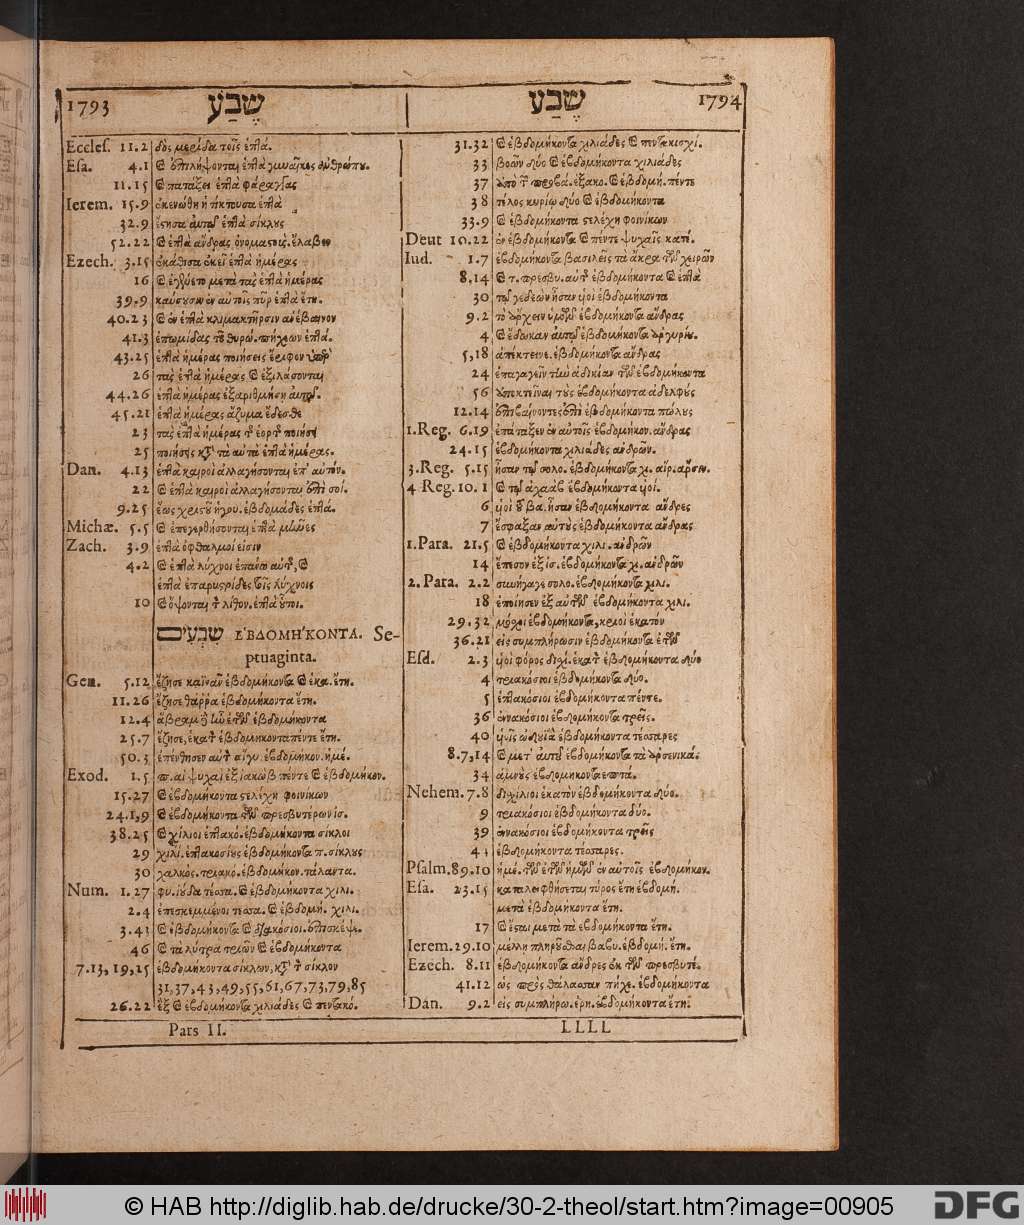 1793 שֶׁבַע
Eccles. 11.2 δὸς μερίδα τοῖς ἑπτά.
Esa. 4.1 καὶ ἐπιλήψονται ἑπτὰ γυναῖκες ἀνθρώπου.
11.15 καὶ πατάξει ἑπτὰ φάραγγας
Ierem. 15.9 ἐκενώθη ἡ τίκτουσα ἑπτὰ
32.9 ἔστησα αὐτῷ ἑπτὰ σίκλους
52.22 καὶ ἑπτὰ ἄνδρας ὀνομαστοὺς. ἔλαβεν
Ezech. 3.15 ἐκάθισα ἐκεῖ ἑπτὰ ἡμέρας
16 καὶ ἐγένετο μετὰ τὰς ἑπτὰ ἡμέρας
39.9 καύσουσιν ἐν αὐτοῖς πῦρ ἑπτὰ ἔτη.
40.23 καὶ ἐν ἑπτὰ κλιμακτῆρσιν ἀνέβαινον
41.3 ἐπωμίδας τοῦ θυρώ. πήχεων ἑπτά.
43.25 ἑπτὰ ἡμέρας ποιήσεις ἔριφον ὑπὲρ
26 τὰς ἑπτὰ ἡμέρας καὶ ἐξιλάσονται
44.26 ἑπτὰ ἡμέρας ἐξαριθμήσῃ αὐτῷ.
45.21 ἑπτὰ ἡμέρας ἄζυμα ἔδεσθε
23 τὰς ἑπτὰ ἡμέρας τῆς ἑορτῆς ποιήσῃ
25 ποιήσῃς κατὰ τὰ αὐτὰ ἑπτὰ ἡμέρας.
Dan. 4.13 ἑπτὰ καιροὶ ἀλλαγήσονται ἐπ' αὐτόν.
22 καὶ ἑπτὰ καιροὶ ἀλλαγήσονται ἐπὶ σοί.
9.25 ἕως χριστοῦ ἡγου. ἑβδομάδες ἑπτά.
Michæ. 5.5 καὶ ἐπεγερθήσονται ἑπτὰ ποιμένες
Zach. 3.9 ἑπτὰ ὀφθαλμοί εἰσιν
4.2 καὶ ἑπτὰ λύχνοι ἐπάνω αὐτῆς, καὶ
ἑπτὰ ἐπαρυστρίδες τοῖς λύχνοις
10 καὶ ὄψονται τὸν λίθον. ἑπτὰ οὗτοι.
שבעים ἙΒΔΟΜΗ΄ΚΟΝΤΑ. Se-
ptuaginta.
Gen. 5.12 ἔζησε καϊνᾶν ἑβδομήκοντα καὶ ἑκα. ἔτη.
11.26 ἔζησε θάρρα ἑβδομήκοντα ἔτη.
12.4 ἄβραμ δὲ ἦν ἐτῶν ἑβδομήκοντα
25.7 ἔζησε, ἑκατὸν ἑβδομηκονταπέντε ἔτη.
50.3 ἐπένθησεν αὐτὸν αἴγυ. ἑβδομήκον. ἡμέ.
Exod. 1.5 π. αἱ ψυχαὶ ἐξ ἰακὼβ πέντε καὶ ἑβδομήκον.
15.27 καὶ ἑβδομήκοντα στελέχη φοινίκων
24.1,9 καὶ ἑβδομήκοντα τῶν πρεσβυτέρων ἰσ.
38.25 καὶ χίλιοι ἑπτακό. ἑβδομήκοντα σίκλοι
29 χιλί. ἑπτακοσίους ἑβδομήκοντα π. σίκλους
30 χαλκὸς. τριακό. ἑβδομήκον. τάλαντα.
Num. 1.27 φυ. ἰούδα τέσσα. καὶ ἑβδομήκοντα χιλι.
2.4 ἐπεσκεμμένοι τέσσα. καὶ ἑβδομή. χιλι.
3.43 καὶ ἑβδομήκοντα καὶ διακόσιοι. ἐπισκέψε.
46 καὶ τὰ λύτρα τριῶν καὶ ἑβδομήκοντα
7.13,19,25 ἑβδομήκοντα σίκλων, κατὰ τὸν σίκλον
31,37,43,49,55,61,67,73,79,85
26.22 ἓξ καὶ ἑβδομήκοντα χιλιάδες καὶ πεντακό.
Pars II.
שֶׁבַע 1794
31.32 καὶ ἑβδομήκοντα χιλιάδες καὶ πεντακισχί.
33 βοῶν δύο καὶ ἑβδομήκοντα χιλιάδες
37 ἀπὸ τῶν προβά. ἑξακο. καὶ ἑβδομή. πέντε
38 τέλος κυρίῳ δύο καὶ ἑβδομήκοντα
33.9 καὶ ἑβδομήκοντα στελέχη φοινίκων
Deut 10.22 ἐν ἑβδομήκοντα καὶ πέντε ψυχαῖς κατέ.
Iud. 1.7 ἑβδομήκοντα βασιλεῖς τὰ ἄκρα τῶν χειρῶν
8.14 καὶ τ. πρεσβυ. αὐτῆς ἑβδομήκοντα καὶ ἑπτὰ
30 τῷ γεδεὼν ἦσαν υἱοὶ ἑβδομήκοντα
9.2 τὸ ἄρχειν ὑμῶν ἑβδομήκοντα ἄνδρας
4 καὶ ἔδωκαν αὐτῷ ἑβδομήκοντα ἀργυρίου.
5,18 ἀπέκτεινε. ἑβδομήκοντα ἄνδρας
24 ἐπαγαγεῖν τὴν ἀδικίαν τῶν ἑβδομήκοντα
56 ἀποκτεῖναι τοὺς ἑβδομήκοντα ἀδελφοὺς
12.14 ἐπιβαίνοντες ἐπὶ ἑβδομήκοντα πώλους
1.Reg. 6.19 ἐπάταξεν ἐν αὐτοῖς ἑβδομήκον. ἄνδρας
24.15 ἑβδομήκοντα χιλιάδες ἀνδρῶν.
3.Reg. 5.15 ἦσαν τῷ σολο. ἑβδομήκοντα χ. αἴρ. ἄρσιν.
4 Reg. 10.1 καὶ τῷ ἀχαὰβ ἑβδομήκοντα υἱοί.
6 υἱοὶ τοῦ βα. ἦσαν ἑβδομήκοντα ἄνδρες
7 ἔσφαξαν αὐτοὺς ἑβδομήκοντα ἄνδρας
1.Para. 21.5 καὶ ἑβδομήκοντα χιλι. ἀνδρῶν
14 ἔπεσον ἐξ ἰσ. ἑβδομήκοντα χ. ἀνδρῶν
2.Para. 2.2 συνήγαγε σολο. ἑβδομήκοντα χιλι.
18 ἐποίησεν ἐξ αὐτῶν ἑβδομήκοντα χιλι.
29.32 μόσχοι ἑβδομήκοντα, κριοὶ ἑκατὸν
36.21 εἰς συμπλήρωσιν ἑβδομήκοντα ἐτῶν
Esd. 2.3 υἱοὶ φόρος δισχί. ἑκατὸν ἑβδομήκοντα δύο
4 τριακόσιοι ἑβδομήκοντα δύο.
5 ἑπτακόσιοι ἑβδομήκοντα πέντε.
36 ἐννακόσιοι ἑβδομήκοντα τρεῖς.
40 υἱοῖς ὠδουΐα ἑβδομήκοντα τέσσαρες
8.7,14 καὶ μετ' αὐτοῦ ἑβδομήκοντα τὰ ἀρσενικά.
34 ἀμνοὺς ἑβδομήκοντα επτά.
Nehem. 7.8 δισχίλιοι ἑκατὸν ἑβδομήκοντα δύο.
9 τριακόσιοι ἑβδομήκοντα δύο.
39 ἐννακόσιοι ἑβδομήκοντα τρεῖς
43 ἑβδομήκοντα τέσσαρες.
Psalm. 89.10 ἡμέ. τῶν ἐτῶν ἡμῶν ἐν αὐτοῖς ἑβδομήκον.
Esa. 23.15 καταλειφθήσεται τύρος ἔτη ἑβδομή.
μετὰ ἑβδομήκοντα ἔτη.
17 καὶ ἔσται μετὰ τὰ ἑβδομήκοντα ἔτη.
Ierem. 29.10 μέλλῃ πληροῦσθαι βαβυ. ἑβδομή. ἔτη.
Ezech. 8.11 ἑβδομήκοντα ἄνδρες ἐκ τῶν πρεσβυτέ.
41.12 ὡς πρὸς θάλασσαν πήχε. ἑβδομήκοντα
Dan. 9.2 εἰς συμπλήρω. ἐρη. ἑβδομήκοντα ἔτη.
LLLL
© HAB http://diglib.hab.de/drucke/30-2-theol/start.htm?image=00905
DFG